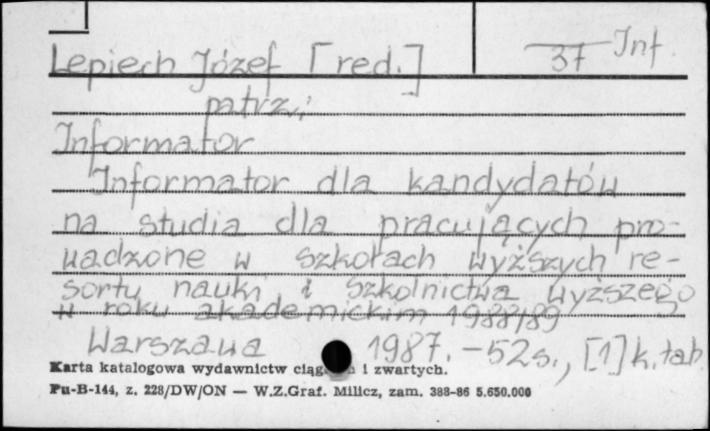 Lepiech Józef [red.]
37 Inf.
patrz:
Informator
Informator dla kandydatów
na studia dla pracujących pro-
wadzone w szkołach wyższych re-
sortu nauki i szkolnictwa wyższego
w roku akademickim 1988/89
Warszawa 1987. - 52 s., [1] k. tab.
Karta katalogowa wydawnictw ciągłych i zwartych.
Pu-B-144, z. 228/DW/ON — W.Z.Graf. Milicz, zam. 388-86 5.650.000